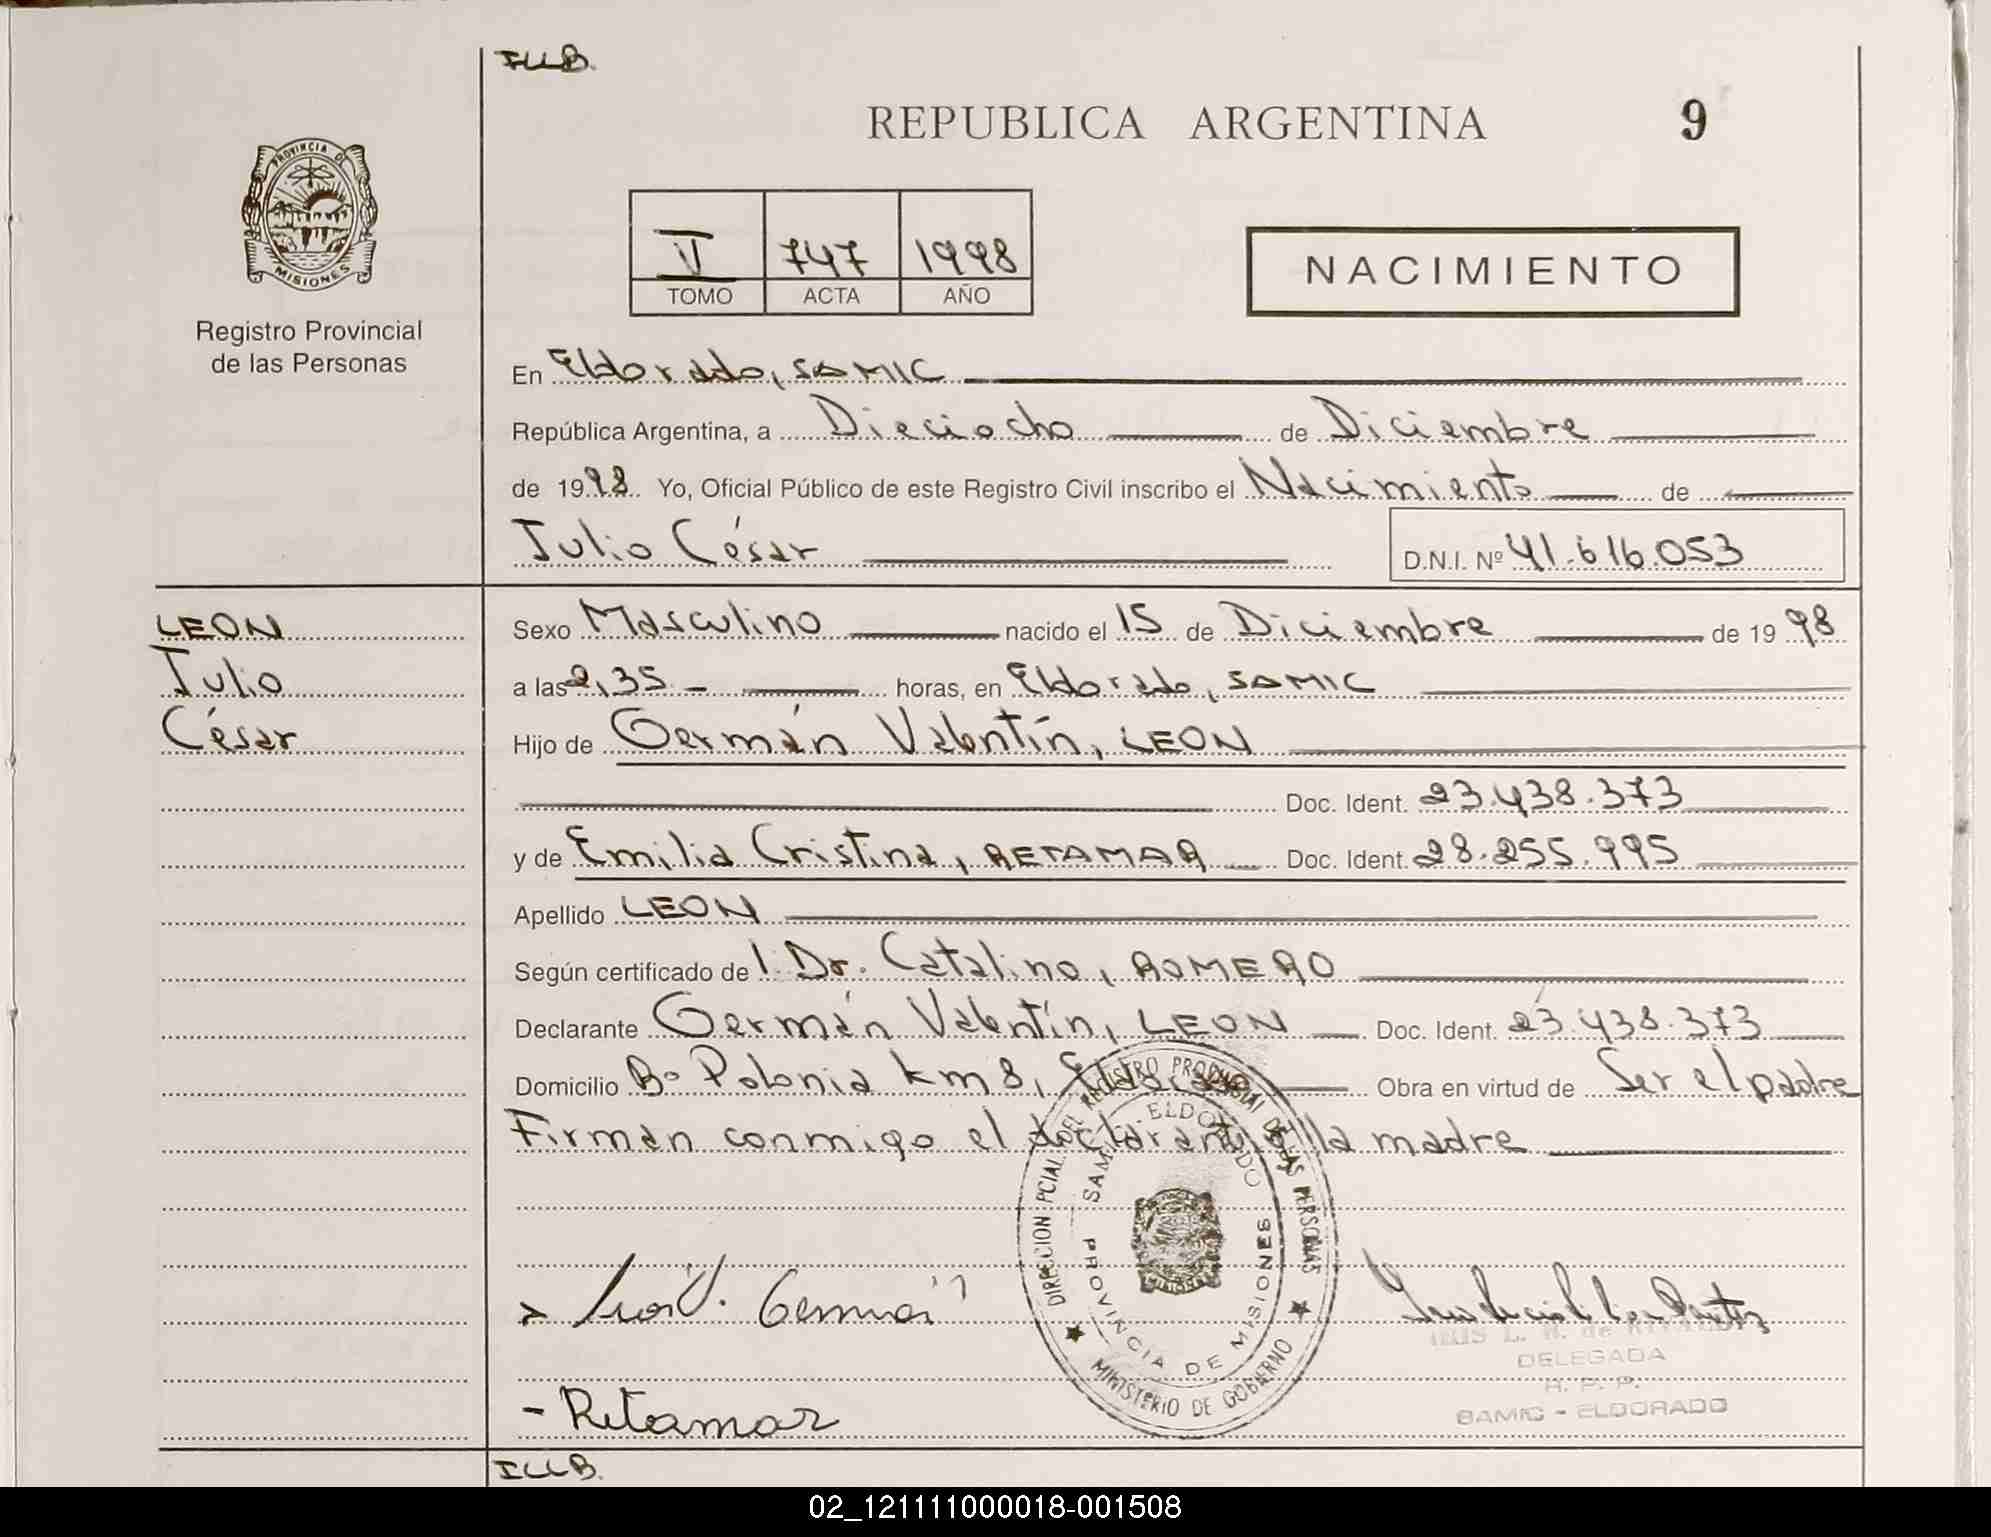 ILLB.
REPUBLICA ARGENTINA 9
PROVINCIA DE
MISIONES
Registro Provincial
de las Personas
V 747 1998
TOMO ACTA AÑO
NACIMIENTO
En Eldorado, SAMIC
República Argentina, a Dieciocho de Diciembre
de 1998 Yo, Oficial Público de este Registro Civil inscribo el Nacimiento de
Julio César D.N.I. Nº 41.616.053
LEON
Julio
César
Sexo Masculino nacido el 15 de Diciembre de 1998
a las 2,35 - horas, en Eldorado, SAMIC
Hijo de Germán Valentín, LEON
Doc. Ident. 23.438.373
y de Emilia Cristina, RETAMAR Doc. Ident. 28.255.995
Apellido LEON
Según certificado de l Dr. Catalino, ROMERO
Declarante Germán Valentín, LEON Doc. Ident. 23.438.373
Domicilio Bº Polonia km 8, Eldorado Obra en virtud de Ser el padre
Firman conmigo el declarante y la madre
DIRECCION PCIAL DEL REGISTRO PROVINCIAL DE LAS PERSONAS
SAMIC - ELDORADO
PROVINCIA DE MISIONES
MINISTERIO DE GOBIERNO
León V. Germán
DELEGADA
R. P. P.
SAMIC - ELDORADO
- Retamar
ILLB.
02_121111000018-001508